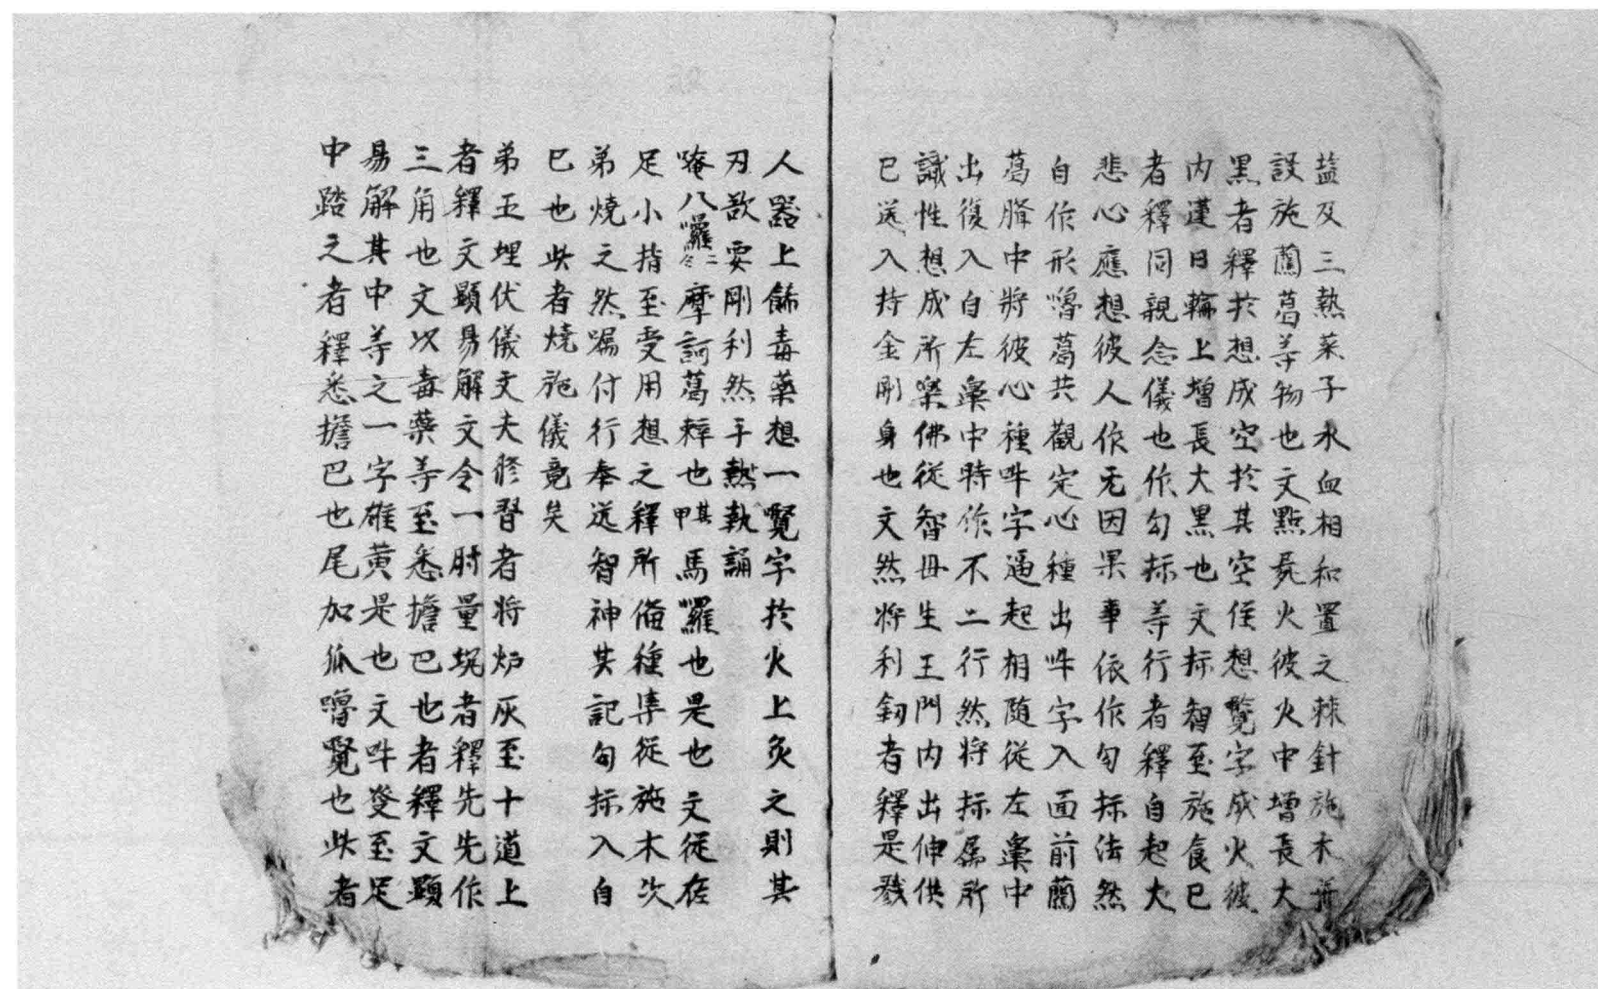 盐及三熱菜子永血相和置之棘針施木并
設施蘭葛等物也文點屍火彼火中增長大
黑者釋扵想成空扵其空住想覽字成火彼
内蓮日輪上增長大黑也文摽智至施食已
者釋同親念儀也作勾摽等行者釋自起大
悲心應想彼人作无因果事依作勾摽法然
自作形嚕葛共觀定心種出吽字入面前蘭
葛𦙶中將彼心種吽字逼起相隨從左𮅕中
出復入自左𮅕中時作不二行然將摽爲所
識性想成所樂佛從智毋生王門内出伸供
已送入持金剛身也文然將利釰者釋是戮
人器上餙毒藥想一覽字扵火上炙之則其
刃欲要剛利然手熱執誦
唵八囉二合摩訶葛辢也其甲馬囉也是也文從在
足小指至受用想之釋所俻種集從施木次
弟燒之然嘱付行奉送智神其記勾摽入自
巳也此者燒施儀竟矣
弟五埋伏儀文夫修習者將炉灰至十道上
者釋文顯易解文令一肘量塊者釋先先作
三角也文次毒藥等至悉擔巴也者釋文顯
易解其中等之一字雄黄是也文吽發至足
中踏之者釋悉擔巴也尾加㧓嚕覽也此者